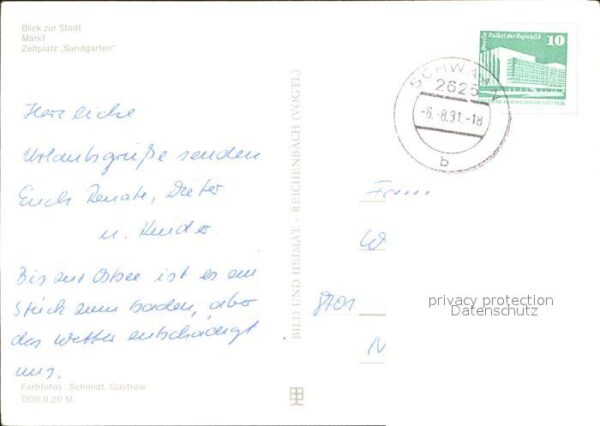 Blick zur Stadt
Markt
Zeltplatz „Sandgarten"
Herzliche
Urlaubsgrüße senden
Euch Renate, Dieter
u. Kinder.
Bis zur Ostsee ist es ein
Stück zum baden, aber
das Wetter entschädigt
uns.
Farbfotos: Schmidt, Güstrow
DDR 0,20 M
BILD UND HEIMAT · REICHENBACH (VOGTL)
SCHWAAN
2625
-6.-8.91.-18
b
Berlin, Palast der Republik
10
Fam.
W
8701
N
privacy protection
Datenschutz